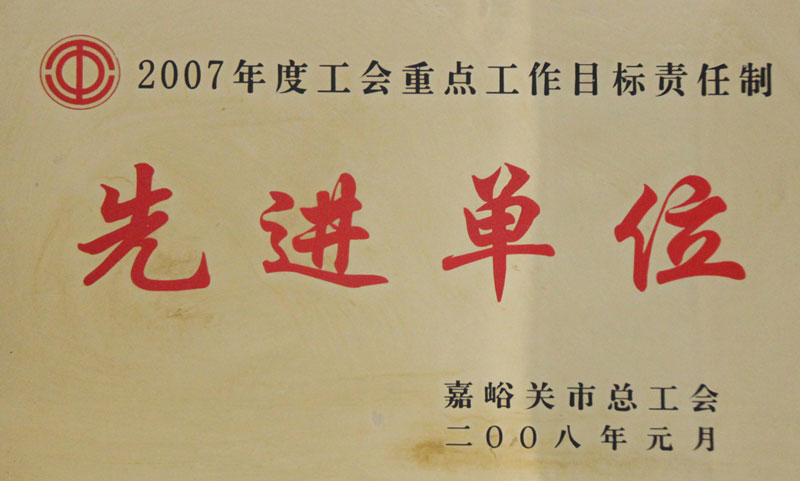 2007年度工会重点工作目标责任制
先进单位
嘉峪关市总工会
二〇〇八年元月